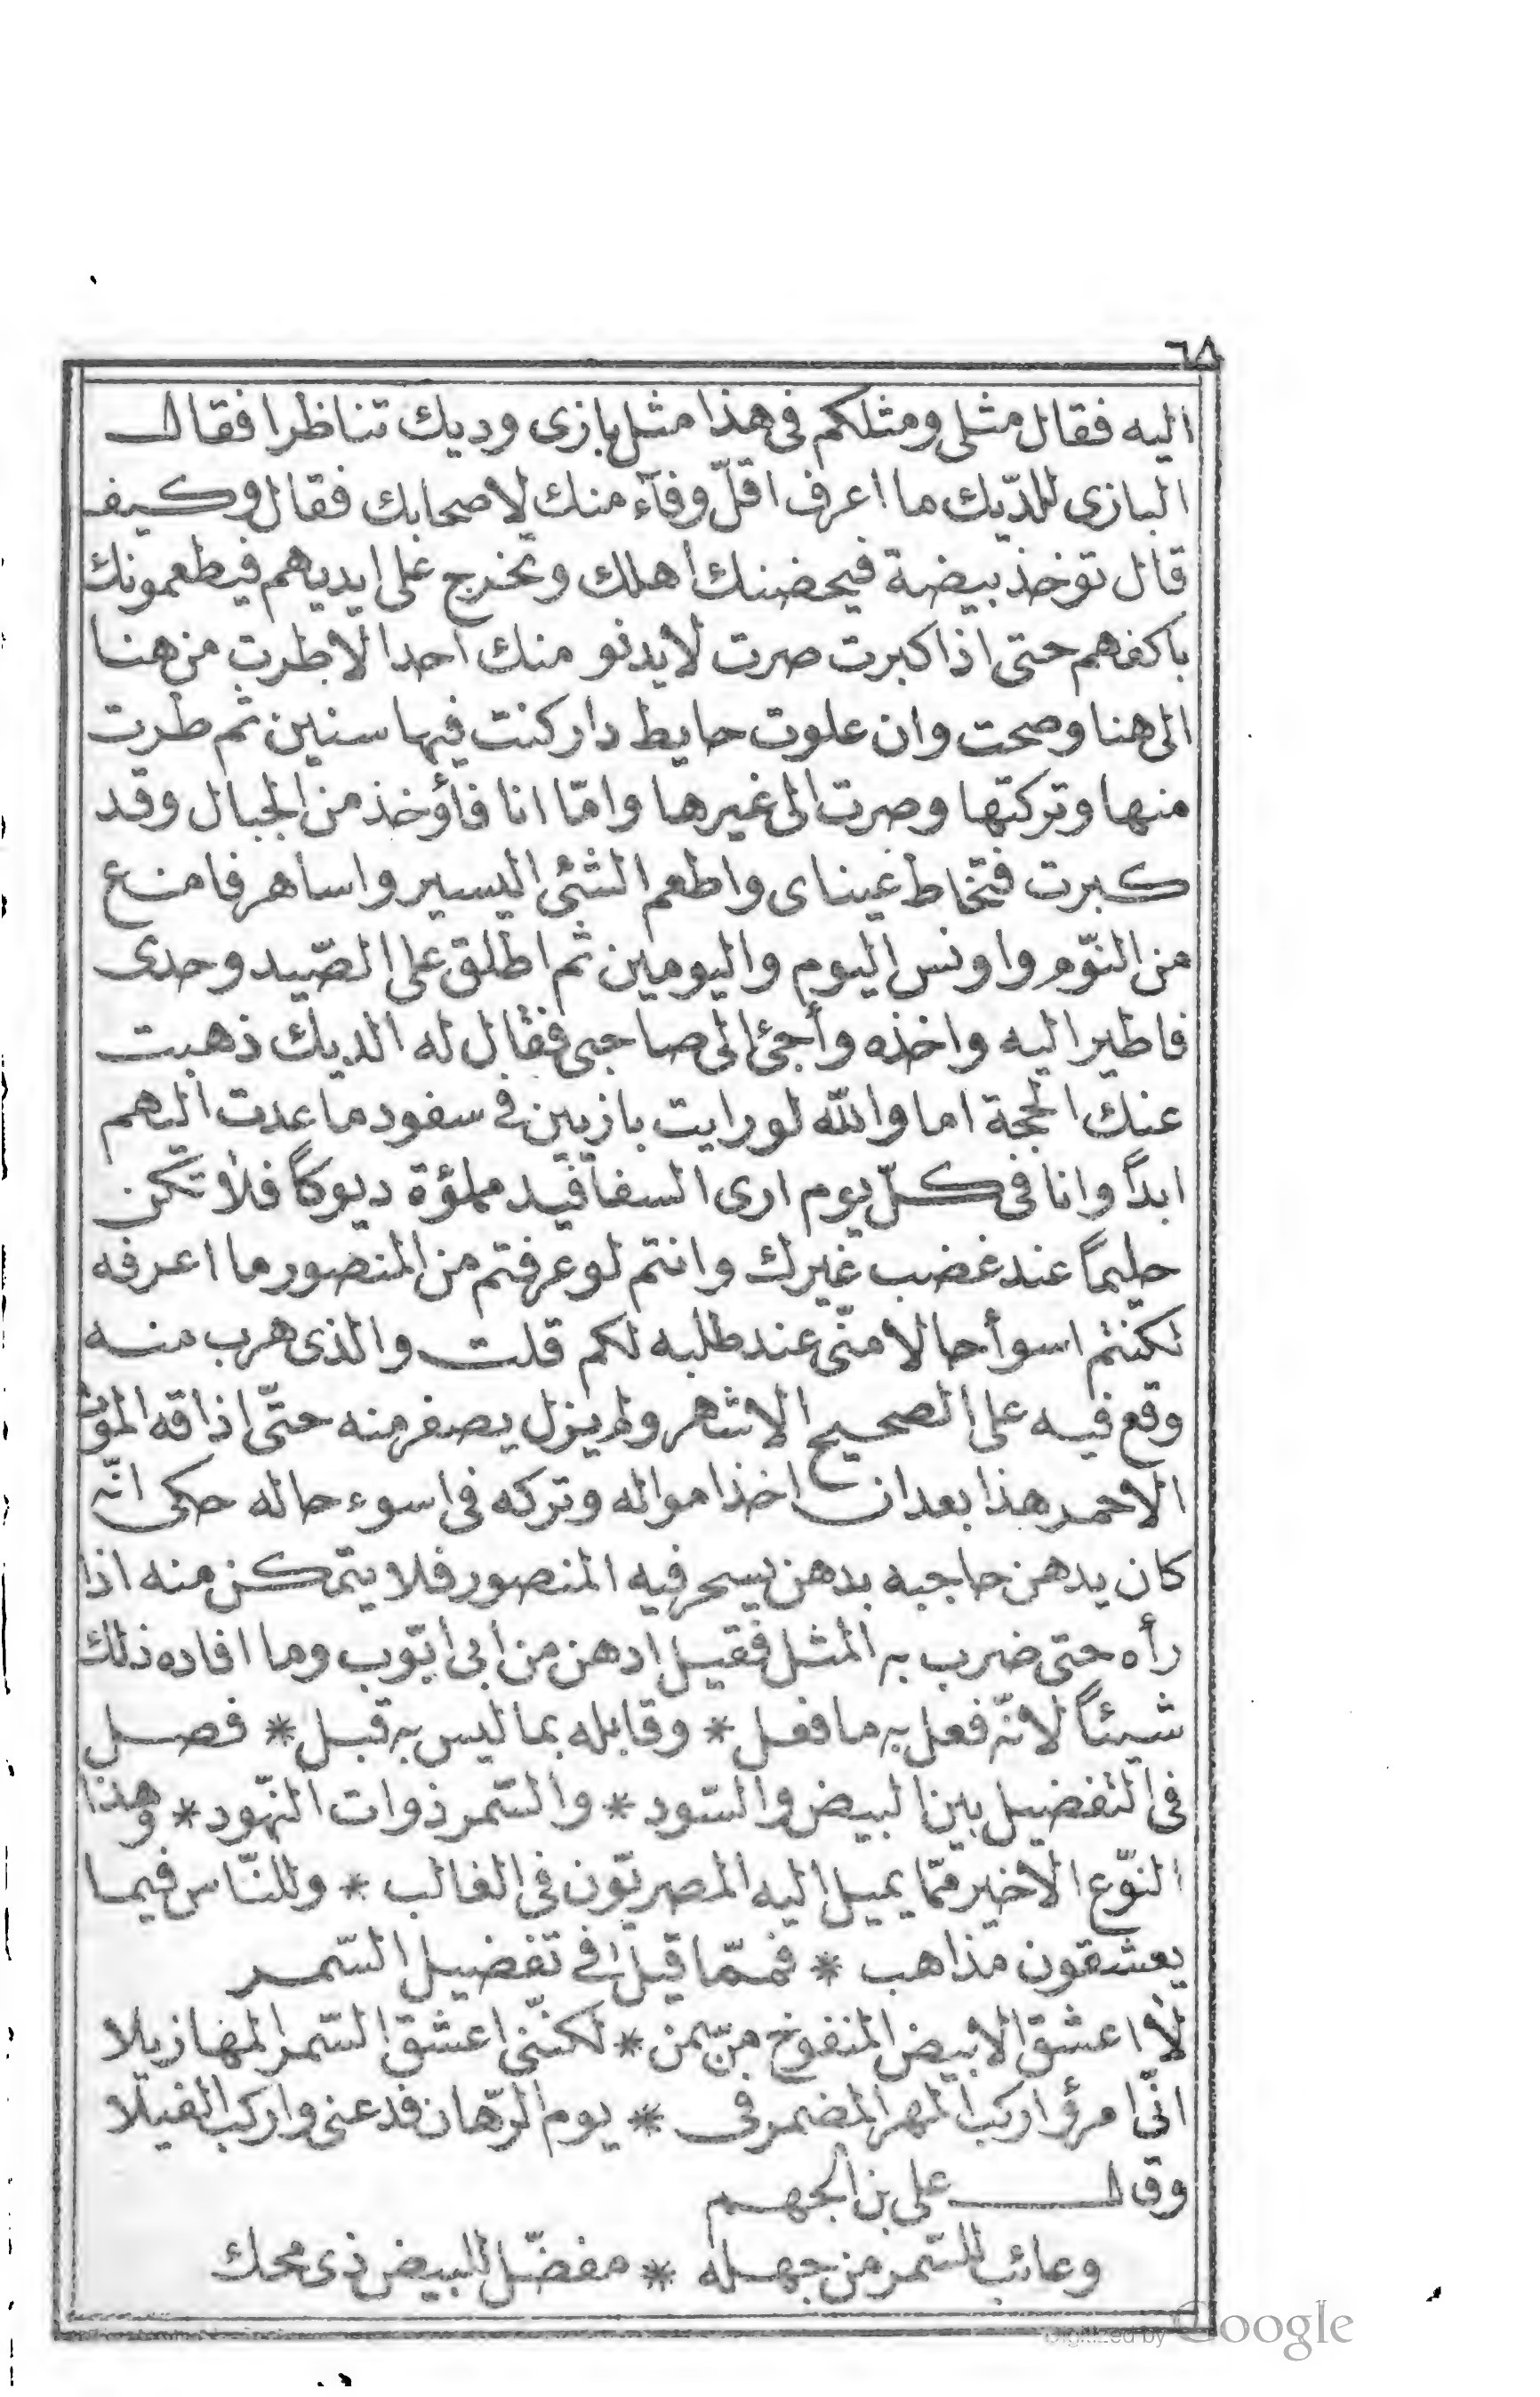 ٦٨
اليه فقال مثلى ومثلكم فى هذا مثل بازى وديك تناظرا فقال
البازى للدّيك ما اعرف اقلّ وفآء منك لاصحابك فقال وكيف
قال تؤخذ بيضة فيحضنك اهلك وتخرج على ايديهم فيطعمونك
باكفهم حتى اذا كبرت صرت لا يدنو منك احدا لا طرت من هنا
الى هنا وصحت وان علوت حايط دار كنت فيها سنين ثم طرت
منها وتركتها وصرت الى غيرها وامّا انا فأؤخذ من الجبال وقد
كبرت فتخاط عيناى واطعم الشئى اليسير واساهر فامنع
من النّوم واونس اليوم واليومين ثم اطلق على الصّيد وحدى
فاطير اليه واخذه وأجئ الى صاحبى فقال له الديك ذهبت
عنك الحجة اما والله لو رايت بازيين فى سفود ما عدت اليهم
ابداً وانا فى كلّ يوم ارى السفافيد مملؤة ديوكاً فلا تكن
حليماً عند غضب غيرك وانتم لو عرفتم من المنصور ما اعرفه
لكنتم اسوأ حالا منّى عند طلبه لكم قلت والذى هرب منه
وقع فيه على الصحيح الاشاهر ولم يزل يصفر منه حتّى اذاقه الموت
الاحمر هذا بعد ان اخذ امواله وتركه فى اسوء حاله حكى انّه
كان يدهن حاجبه بدهن يسحر فيه المنصور فلا يتمكن منه اذا
رأه حتى ضرب به المثل فقيل ادهن من ابى ايّوب وما افاده ذلك
شيئاً لانّه فعل به ما فعل * وقابله بما ليس به قبل * فصل
فى التفضيل بين البيض والسّود * والسّمر ذوات النّهود * وهذا
النّوع الاخير ممّا يميل اليه المصريّون فى الغالب * وللنّاس فيما
يعشقون مذاهب * فممّا قيل فى تفضيل السّمر
لا اعشق الابيض المنفوخ من سمن * لكنّنى اعشق السّمر المهازيلا
انّى امرؤ اركب المهر المضمر فى * يوم الرّهان فدعنى واركب الفيلا
وقال على بن الجهم
وعائب للسّمر من جهله * مفضّل للبيض ذى محك
Digitized by Google